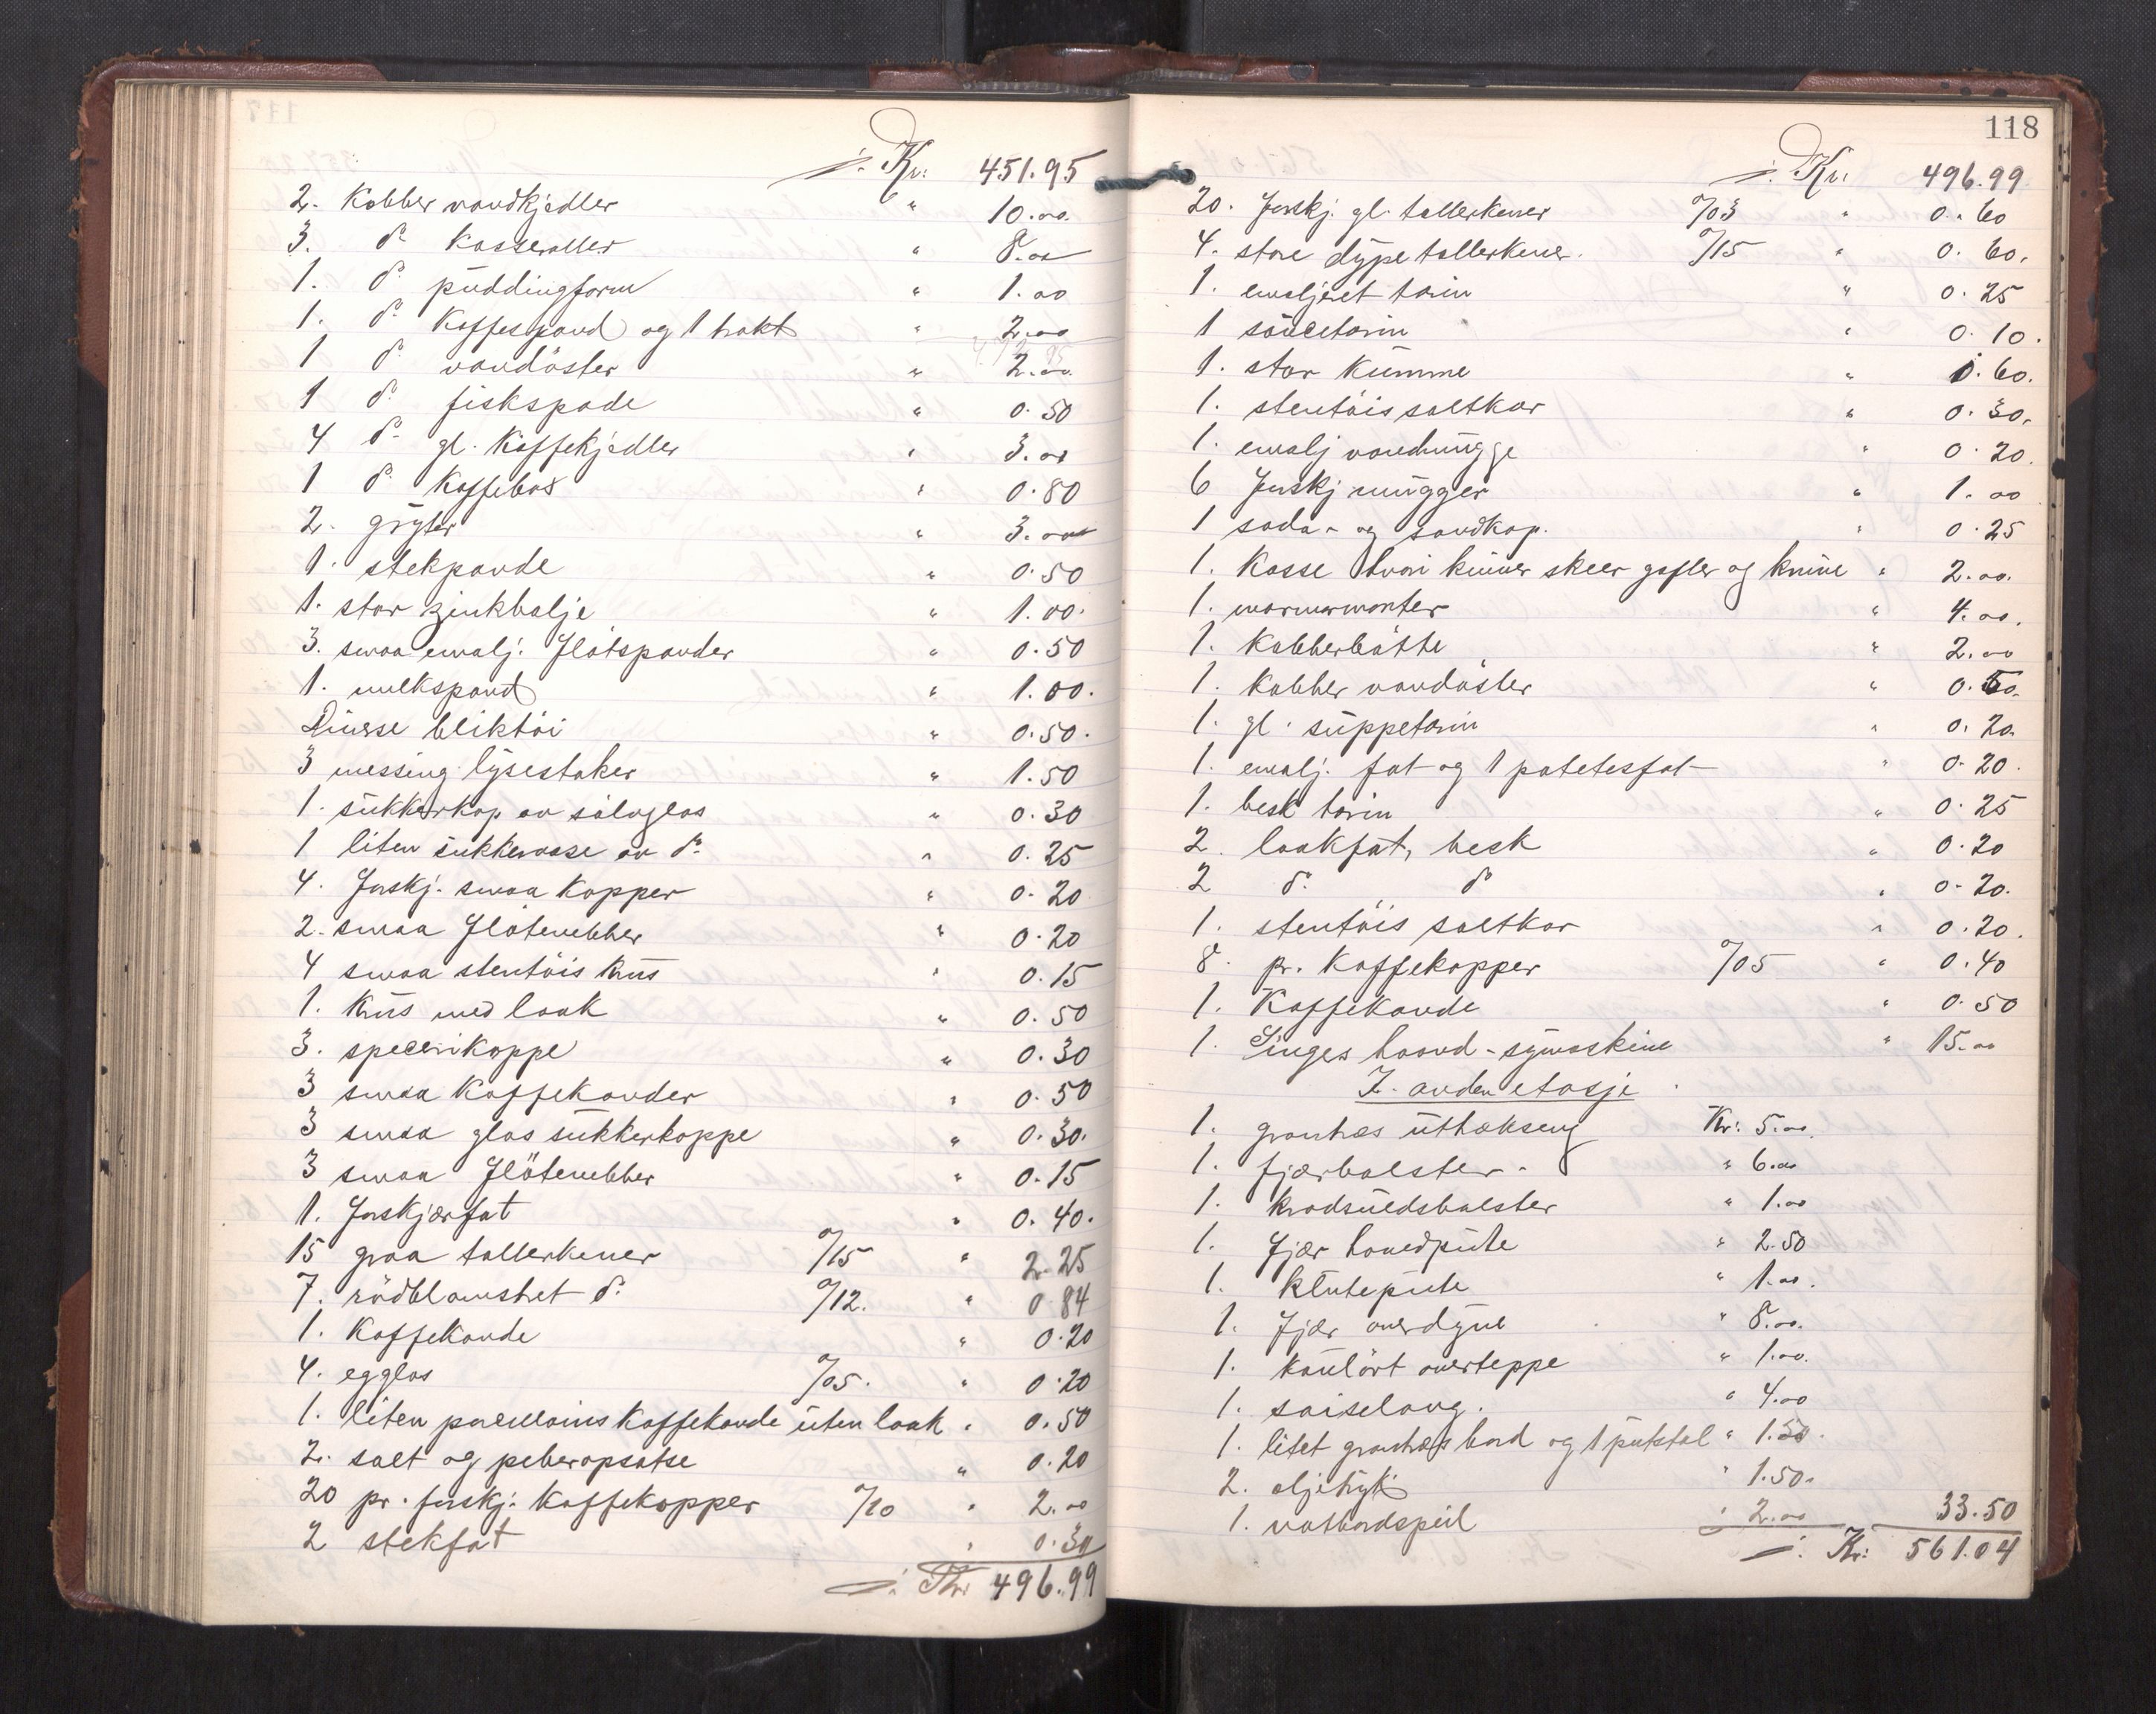 ./. Kr: 451.95
2. Kobber vandkjedler " 10.00.
3. do Kasseroller " 8.00
1. do puddingform " 1.00
1. do Kaffespand og 1 trakt " 2.00
1 do vandöster " 2.00.
1 do fiskspade " 0.50
4 do gl. Kaffekjedler " 3.00
1 do Kaffebos " 0.80
2. gryter " 3.00
1. stekpande " 0.50
1. stor zinkbalje " 1.00.
3. smaa emalj. Flötspander " 0.50
1. melkspand " 1.00.
Diverse bliktöi " 0.50.
3 messing lysestaker " 1.50
1. sukkerkop av sölvglas " 0.30
1 liten sukkervase av do " 0.25
4. Forskj. smaa Kopper " 0.20
2. smaa Flötenebber " 0.20
4 smaa stentöis krus " 0.15
1. Krus med laak " 0.50
3. specerikoppe " 0.30
3 smaa Kaffekander " 0.50
3 smaa glas sukkerkoppe " 0.30.
3 smaa Flötenebber " 0.15
1. Forskjærfat " 0.40.
15 graa tallerkener a/15 " 2.25
7. rödblomstret do a/12. " 0.84
1. Kaffekande " 0.20
4. egglas a/05. " 0.20
1. liten porcelains Kaffekande uten laak " 0.50
2. salt og peberopsatse " 0.20
20 pr. forskj. Kaffekopper a/10 " 2.00
2 stekfat " 0.30
./. Kr: 496.99
118
./. Kr: 496.99
20. Forskj. gl. tallerkener a/03 " 0.60
4. store dype tallerkener. a/15 " 0.60.
1. emaljeret terin " 0.25
1 sauceterin " 0.10.
1. stor Kumme " 0.60.
1. stentöis saltkar " 0.30.
1. emalj vandmugge " 0.20.
6 Forskj mugger " 1.00
1 soda- og sandkop. " 0.25
1. Kasse hvori kniver skeer gafler og knive " 2.00.
1. marmormorter " 4.00.
1. Kobberbötte " 2.00
1. Kobber vandöster " 0.50.
1. gl. suppeterin " 0.20.
1. emalj. fat og 1 potetesfat " 0.20.
1. besk terin " 0.25
2. laakfat, besk " 0.20
2 do do " 0.20.
1. stentöis saltkar " 0.20.
8. pr. Kaffekopper a/05 " 0.40
1. Kaffekande " 0.50
1. Singes haand-symaskine " 15.00
I. anden etasje
1. grantræs uttrækseng Kr: 5.00.
1. fjærbolster. " 6.00
1. kradsuldsbolster " 1.00
1. Fjær hovedpute " 2.50
1. klutepute " 1.00.
1. Fjær overdyne " 8.00.
1. kaulört overteppe " 1.00.
1. saiselong. " 4.00
1. litet grantræs bord og 1 putstol " 1.50.
2. oljetryk " 1.50.
1. vatbordspeil " 2.00 33.50
./. Kr: 561.04